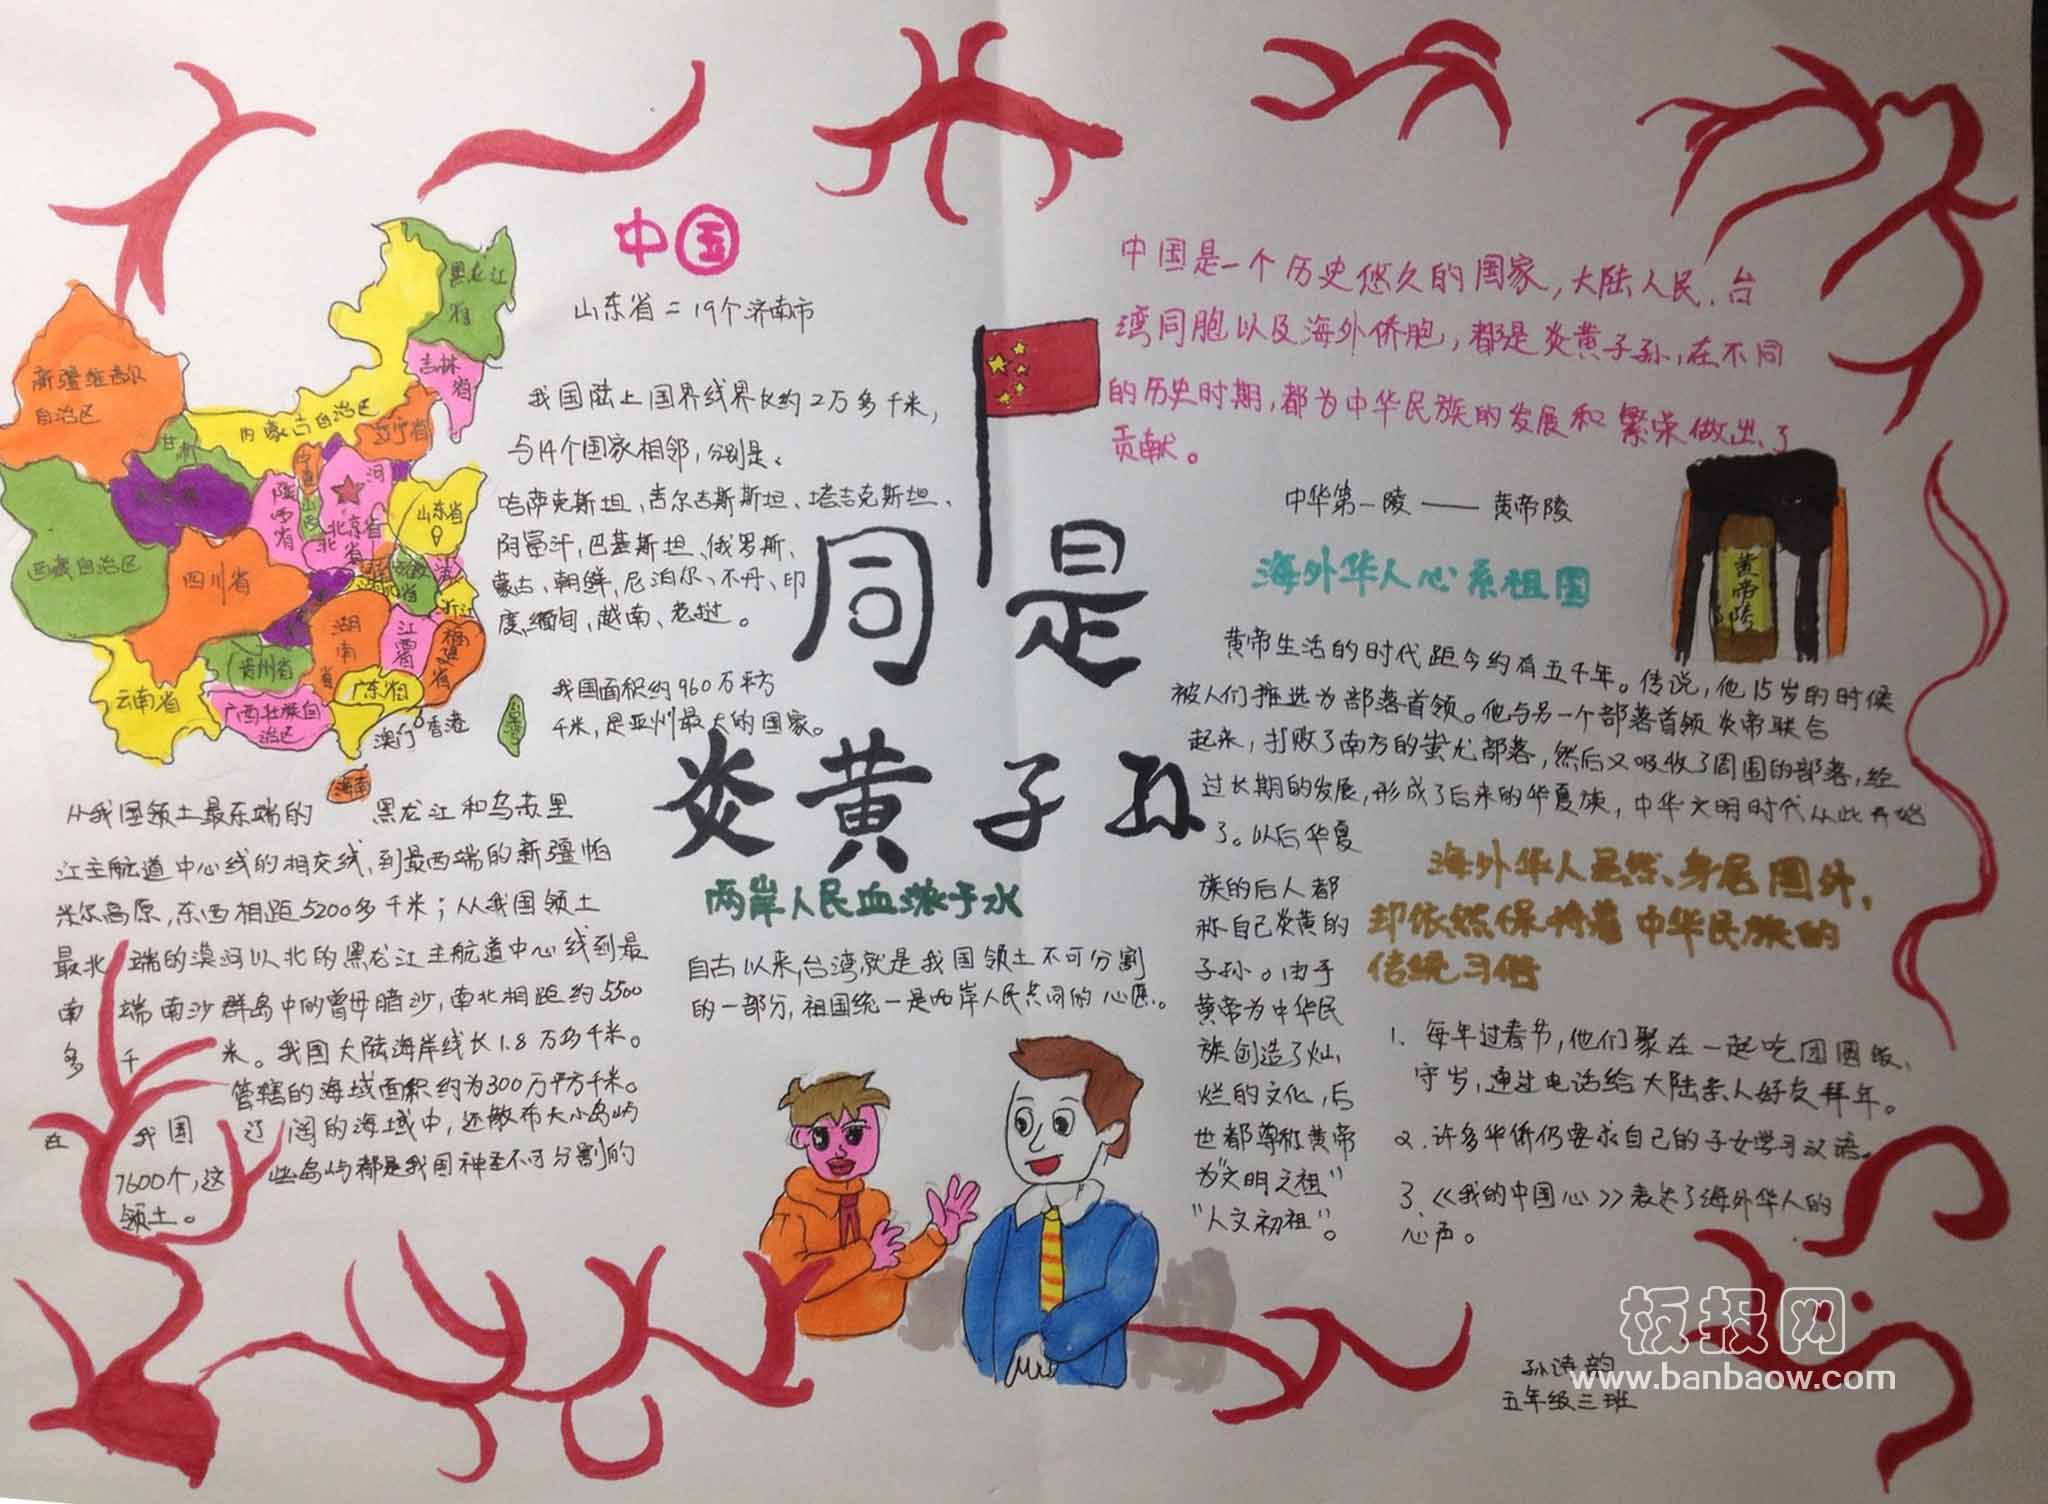 中国
山东省=19个济南市
我国陆上国界线界长约2万多千米，
与14个国家相邻，分别是、
哈萨克斯坦、吉尔吉斯斯坦、塔吉克斯坦、
阿富汗，巴基斯坦、俄罗斯、
蒙古、朝鲜，尼泊尔、不丹、印
度，缅甸，越南、老挝。
我国面积约960万平方
千米，是亚州最大的国家。
黑龙江
省
吉林
省
新疆维吾尔
自治区
内蒙古自治区
辽宁省
甘肃
河
北
省
北京
山东省
陕
西
省
山
西
西藏自治区
四川省
湖
南
省
江
西
省
浙江
福
建
省
贵州省
云南省
广东省
广西壮族自
治区
澳门
香港
海南
从我国领土最东端的 黑龙江和乌苏里
江主航道中心线的相交线，到最西端的新疆怕
米尔高原，东西相距5200多千米；从我国领土
最北端的漠河以北的黑龙江主航道中心线到最
南端南沙群岛中的曾母暗沙，南北相距约5500
多千米。我国大陆海岸线长1.8万多千米。
管辖的海域面积约为300万平方千米。
在我国辽阔的海域中，还散布大小岛屿
7600个，这些岛屿都是我国神圣不可分割的
领土。
同是
炎黄子孙
两岸人民血浓于水
自古以来，台湾就是我国领土不可分割
的一部分，祖国统一是两岸人民共同的心愿。
中国是一个历史悠久的国家，大陆人民、台
湾同胞以及海外侨胞，都是炎黄子孙，在不同
的历史时期，都为中华民族的发展和繁荣做出了
贡献。
中华第一陵——黄帝陵
黄帝陵
海外华人心系祖国
黄帝生活的时代距今约有五千年。传说，他15岁的时候
被人们推选为部落首领。他与另一个部落首领炎帝联合
起来，打败了南方的蚩尤部落，然后又吸收了周围的部落，经
过长期的发展，形成了后来的华夏族，中华文明时代从此开始
了。以后华夏
族的后人都
称自己炎黄的
子孙。由于
黄帝为中华民
族创造了灿
烂的文化，后
也都尊称黄帝
为“文明之祖”
“人文初祖”。
海外华人虽然身居国外，
却依然保持着中华民族的
传统习俗
1、每年过春节，他们聚在一起吃团圆饭、
守岁，通过电话给大陆亲人好友拜年。
2、许多华侨仍要求自己的子女学习汉语。
3、《我的中国心》表达了海外华人的
心声。
孙诗韵
五年级三班
板报网
www.banbaow.com